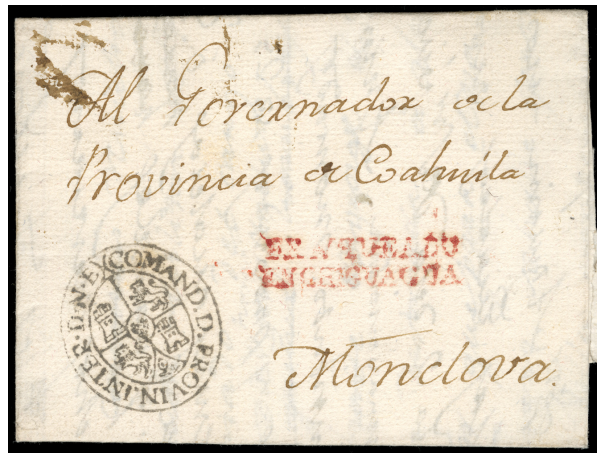 Al Governador de la
Provincia de Coahuila
FRANQUEADO
EN CHIGUAGUA
COMAND. D. PROVIN. INTER. D. N. E.
Mondova.